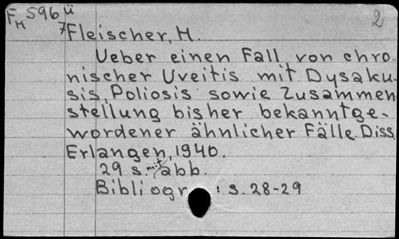 F_M 596 ü 2
7 Fleischer, H.
Ueber einen Fall von chro-
nischer Uveitis mit Dysaku-
sis, Poliosis sowie Zusammen
stellung bisher bekanntge-
wordener ähnlicher Fälle. Diss.
Erlangen, 1940.
29 s. mit abb.
Bibliogr : s. 28-29